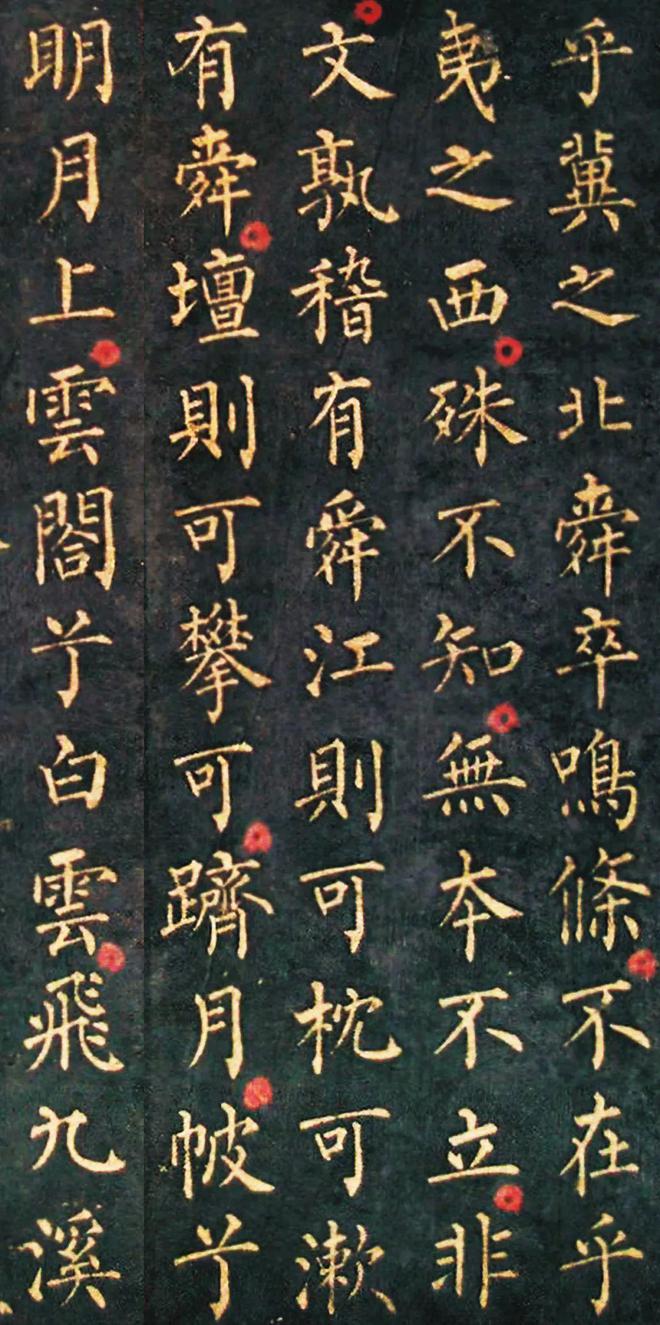 乎冀之北舜卒鳴條不在乎
夷之西殊不知無本不立非
文孰稽有舜江則可枕可漱
有舜壇則可攀可躋月帔兮
明月上雲閣兮白雲飛九溪